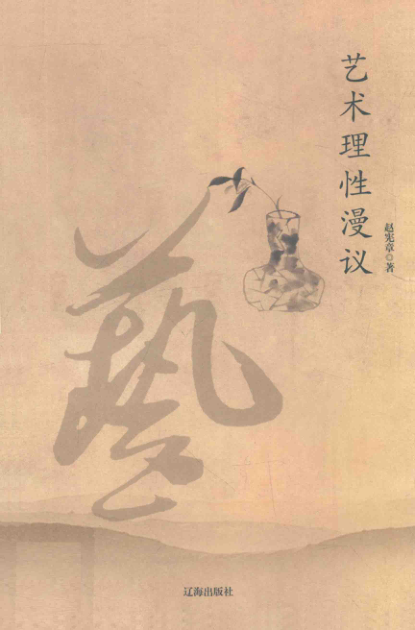 艺术理性漫议
赵宪章◎著
藝
辽海出版社